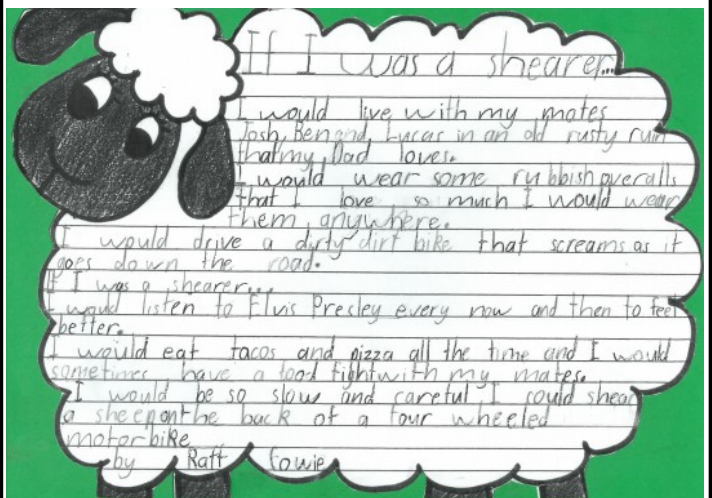 If I was a shearer...
I would live with my mates
Josh, Ben and Lucas in an old rusty ruin
that my Dad loves.
I would wear some rubbish overalls
that I love so much I would wear
them anywhere.
I would drive a dirty dirt bike that screams as it
goes down the road.
If I was a shearer...
I would listen to Elvis Presley every now and then to feel
better.
I would eat tacos and pizza all the time and I would
sometimes have a food fight with my mates.
I would be so slow and careful I could shear
a sheep on the back of a four wheeled
motorbike
by Raff Cowie